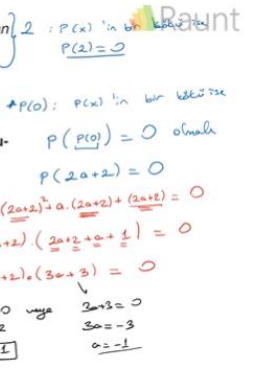 Raunt
2 : P(x) 'in bir kökü ise
P(2)=0
* P(0) : P(x) 'in bir kökü ise
P( P(0) ) = 0 olmalı
P(2a+2) = 0
(2a+2)² + a.(2a+2) + (2a+2) = 0
+2).(2a+2+a+1) = 0
+2).(3a+3) = 0
0 veya 3a+3=0
2 3a=-3
1 a=-1